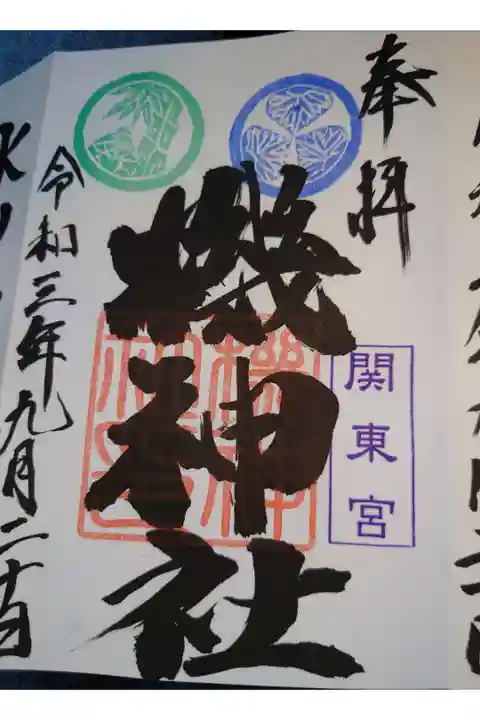 奉拝
関東宮
機神社
令和三年九月二十日